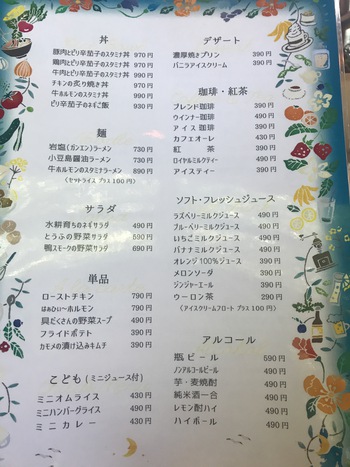 丼
豚肉とピリ辛茄子のスタミナ丼 970円
鶏肉とピリ辛茄子のスタミナ丼 970円
牛肉とピリ辛茄子のスタミナ丼 990円
チキンの炙り焼き丼 970円
牛ホルモンのスタミナ丼 990円
ピリ辛茄子のネギご飯 930円
麺
岩塩(ガンエン)ラーメン 730円
小豆島醤油ラーメン 730円
牛ホルモンのスタミナラーメン 890円
(セットライス プラス100円)
サラダ
水耕育ちのネギサラダ 490円
とうふの野菜サラダ 590円
鴨スモークの野菜サラダ 690円
単品
ローストチキン 790円
はあひぃ〜ホルモン 790円
具だくさんの野菜スープ 490円
フライドポテト 430円
カモメの漬け込みキムチ 390円
こども(ミニジュース付)
ミニオムライス 430円
ミニハンバーグライス 490円
ミニカレー 430円
デザート
濃厚焼きプリン 390円
バニラアイスクリーム 390円
珈琲・紅茶
ブレンド珈琲 390円
ウインナー珈琲 490円
アイス珈琲 390円
カフェオーレ 490円
紅茶 390円
ロイヤルミルクティー 490円
アイスティー 390円
ソフト・フレッシュジュース
ラズベリーミルクジュース 490円
ブルーベリーミルクジュース 490円
いちごミルクジュース 490円
バナナミルクジュース 490円
オレンジ100%ジュース 390円
メロンソーダ 390円
ジンジャーエール 390円
ウーロン茶 290円
(アイスクリームフロート プラス100円)
アルコール
瓶ビール 590円
ノンアルコールビール 490円
芋・麦焼酎 490円
純米酒一合 490円
レモン酎ハイ 490円
ハイボール 490円